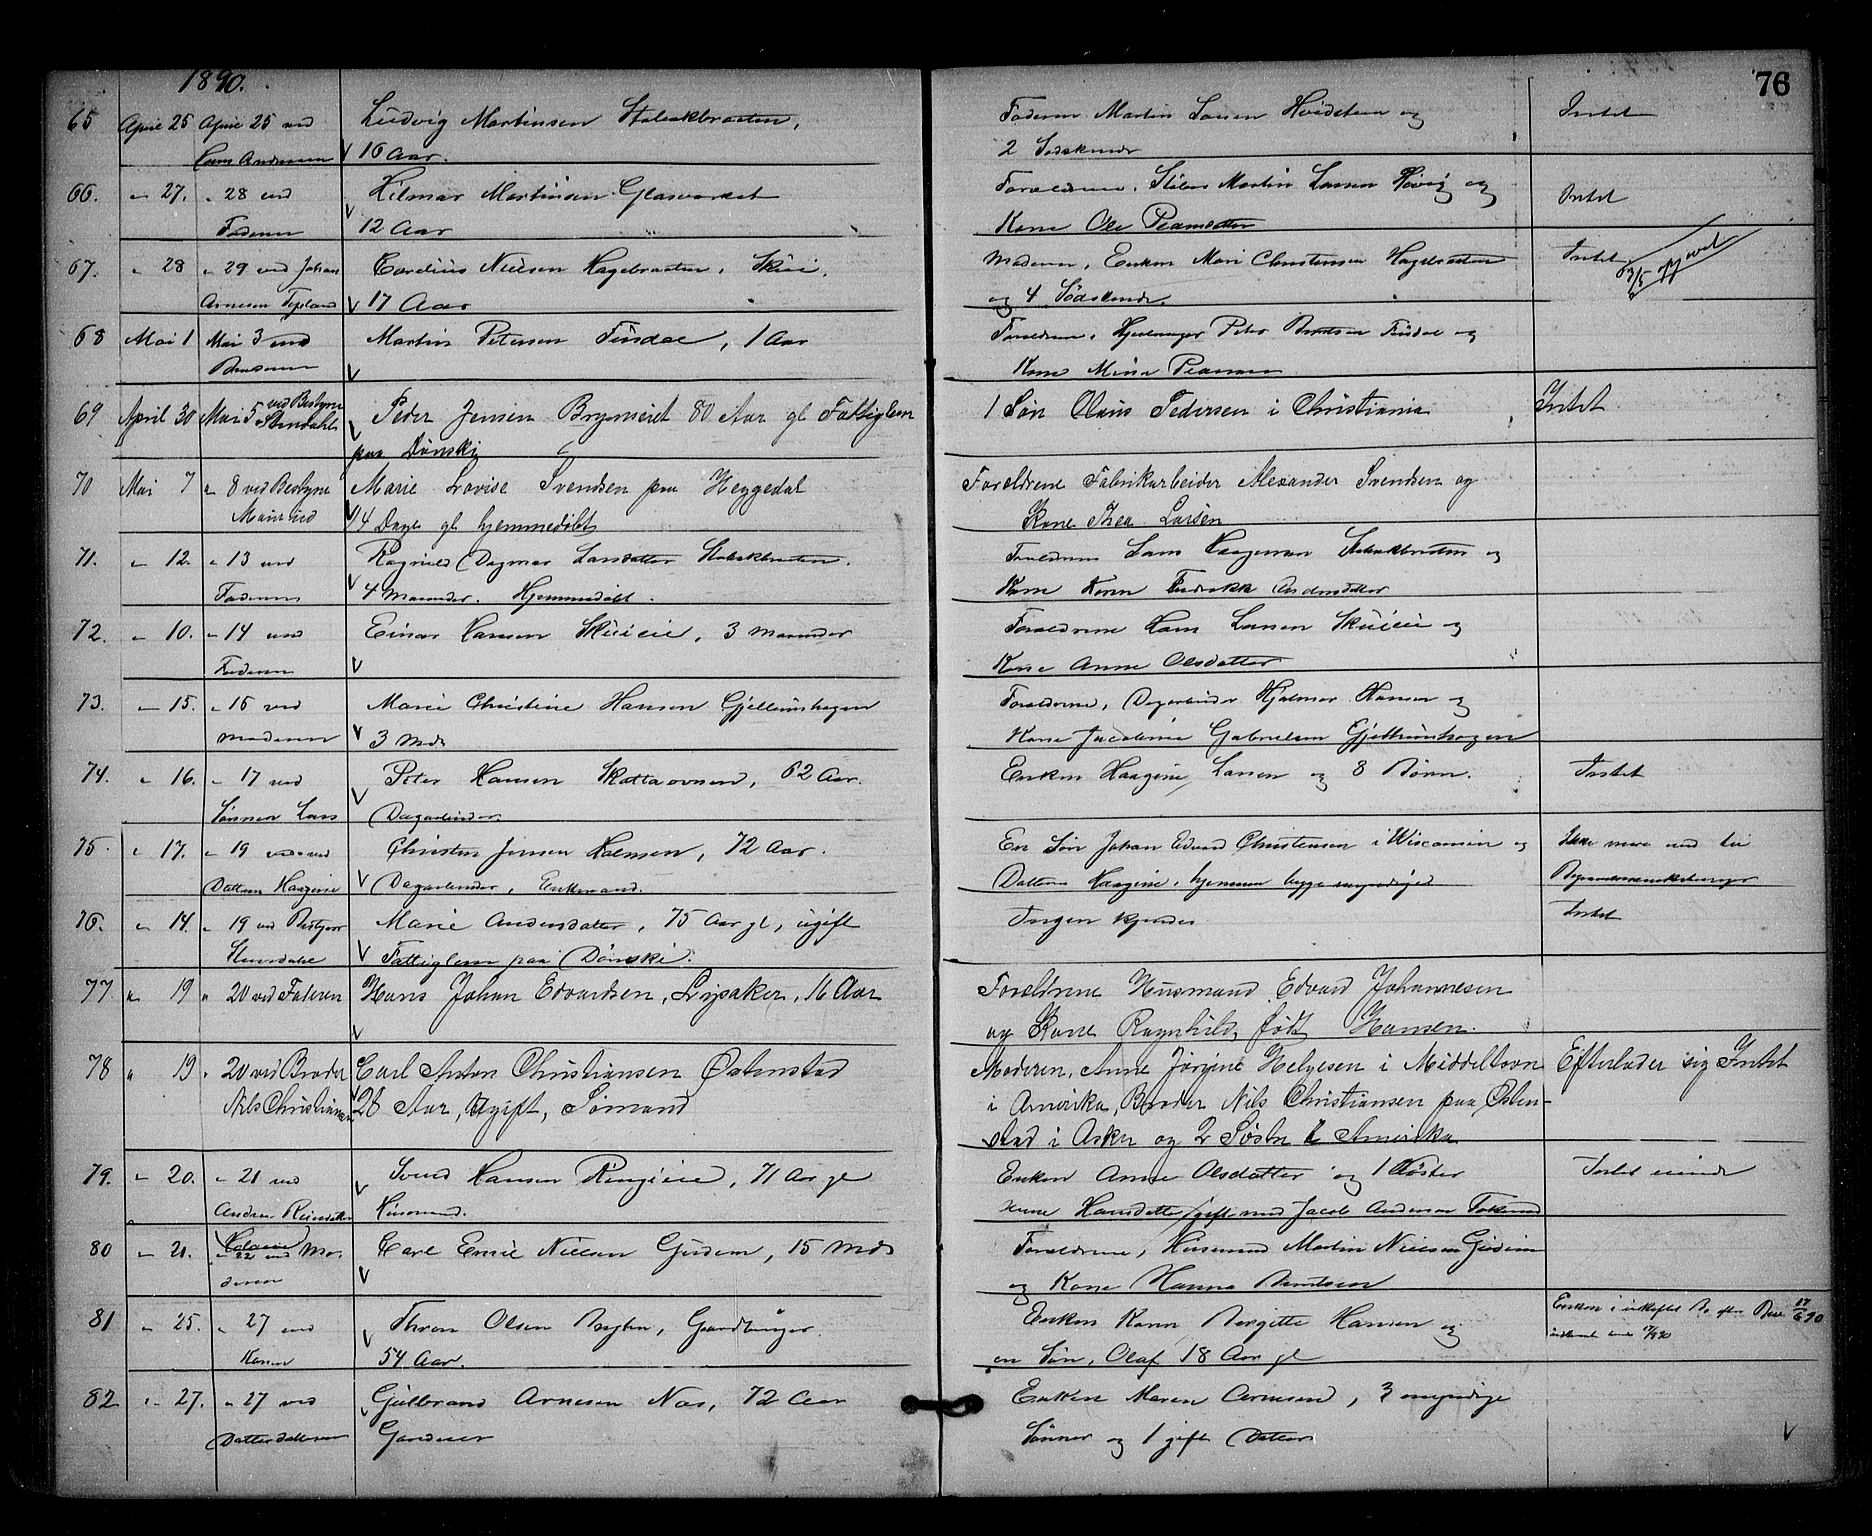 1890.
76
65 April 25 April 25 ved Ludvig Martinsen Stabækbraaten, Faderen Martin Hvidsteen og Intet
16 Aar. 2 Sødskende
66. " 27. " 28 ved Hilmar Martinsen Glasværket Forældrene, Martin Larsen Høvig og Intet
Faderen 12 Aar Kone
67. " 28 " 29 ved Johan Carelius Nielsen Hagebraaten, Skui, Moderen, Enken Mari Christensen Hagebraaten Intet
Arnesen 17 Aar og 4 Sødskende.
68 Mai 1 Mai 3 ved Martin Petersen Tindal, 1 Aar Forældrene, Peter Berntsen Tindal og
Kone Mina
69 April 30 Mai 5 ved Bestyrer Stendahl Peder Jensen 80 Aar gl Fattiglem 1 Søn Olaus Pedersen i Christiania Intet
paa Dønski
70 Mai 7 " 8 ved Bestyrer Marie Lovise Svendsen paa Heggedal Forældrene Fabrikarbeider Alexander Svendsen og
14 Dage gl hjemmedøbt Kone Thea Larsen
71. " 12. " 13 ved Ragnild Dagmar Larsdatter Stabækbraaten. Forældrene Lars Haagensen Stabækbraaten og
Faderen 4 Maaneder. Hjemmedøbt. Kone Karen Andersdatter
72. " 10. " 14 ved Einar Hansen Skuieie, 3 Maaneder Forældrene Hans Larsen Skuieie og
Faderen Kone Anne Olsdatter
73. " 15. " 16 ved Marie Christine Hansen Gjellumshagen Forældrene, Dagarbeider Hjalmar Hansen og
Moderen 3 Mdr Kone Jacobine Gabrielsen Gjellumshagen
74. " 16. " 17 ved Peter Hansen Skattaovnen, 62 Aar. Enken Haagine Larsen og 8 Børn. Intet
Sønnen Lars Dagarbeider.
75. " 17. " 19 ved Christen Jensen Holmen, 72 Aar. En Søn Johan Edvard Christensen i Wisconsin og Ikke mere end til
Datteren Haagine Dagarbeider, Enkemand. Datteren Haagine, hjemme begge myndige Begravelsesomkostninger
76. " 14. " 19 ved Bestyrer Marie Andersdatter, 75 Aar gl, ugift Ingen kjendes Intet
Stendahl Fattiglem paa Dønski.
77 " 19 " 20 ved Faderen Hans Johan Edvardsen, Lysaker, 16 Aar Forældrene Husmand Edvard Johannesen
og Kone Ragnhild, født Hansen.
78 " 19 " 20 ved Broder Carl Anton Christiansen Østenstad Moderen, Anne Jørgine Helgesen i Middeltown Efterlader sig Intet
Nils Christiansen 28 Aar, Ugift, Sømand i Amerika, Broder Nils Christiansen paa Østen-
stad i Asker og 2 Søstre i Amerika
79. " 20. " 21 ved Svend Hansen Ringieie, 71 Aar gl Enken Anne Olsdatter og 1 Søster Intet eiende
Husmand. Hansdatter gift med Jacob Andersen
80 " 21. " 22 ved Mo- Carl Emil Nielsen Gudem, 15 Mdr Forældrene, Husmand Martin Nielsen Gudem
deren og Kone Hanna Berntsen
81 " 25. " 27 ved Thron Olsen Gaardbruger. Enken Karen Birgitte Hansen og Enken i uskiftet Bo efter Bev. 17/6 90
Konen 54 Aar. en Søn, Olaf 18 Aar gl
82 " 27. " 27 ved Gulbrand Arnesen Næs, 72 Aar Enken Maren Arnesen, 3 myndige
Gaardeier Sønner og 1 gift Datter